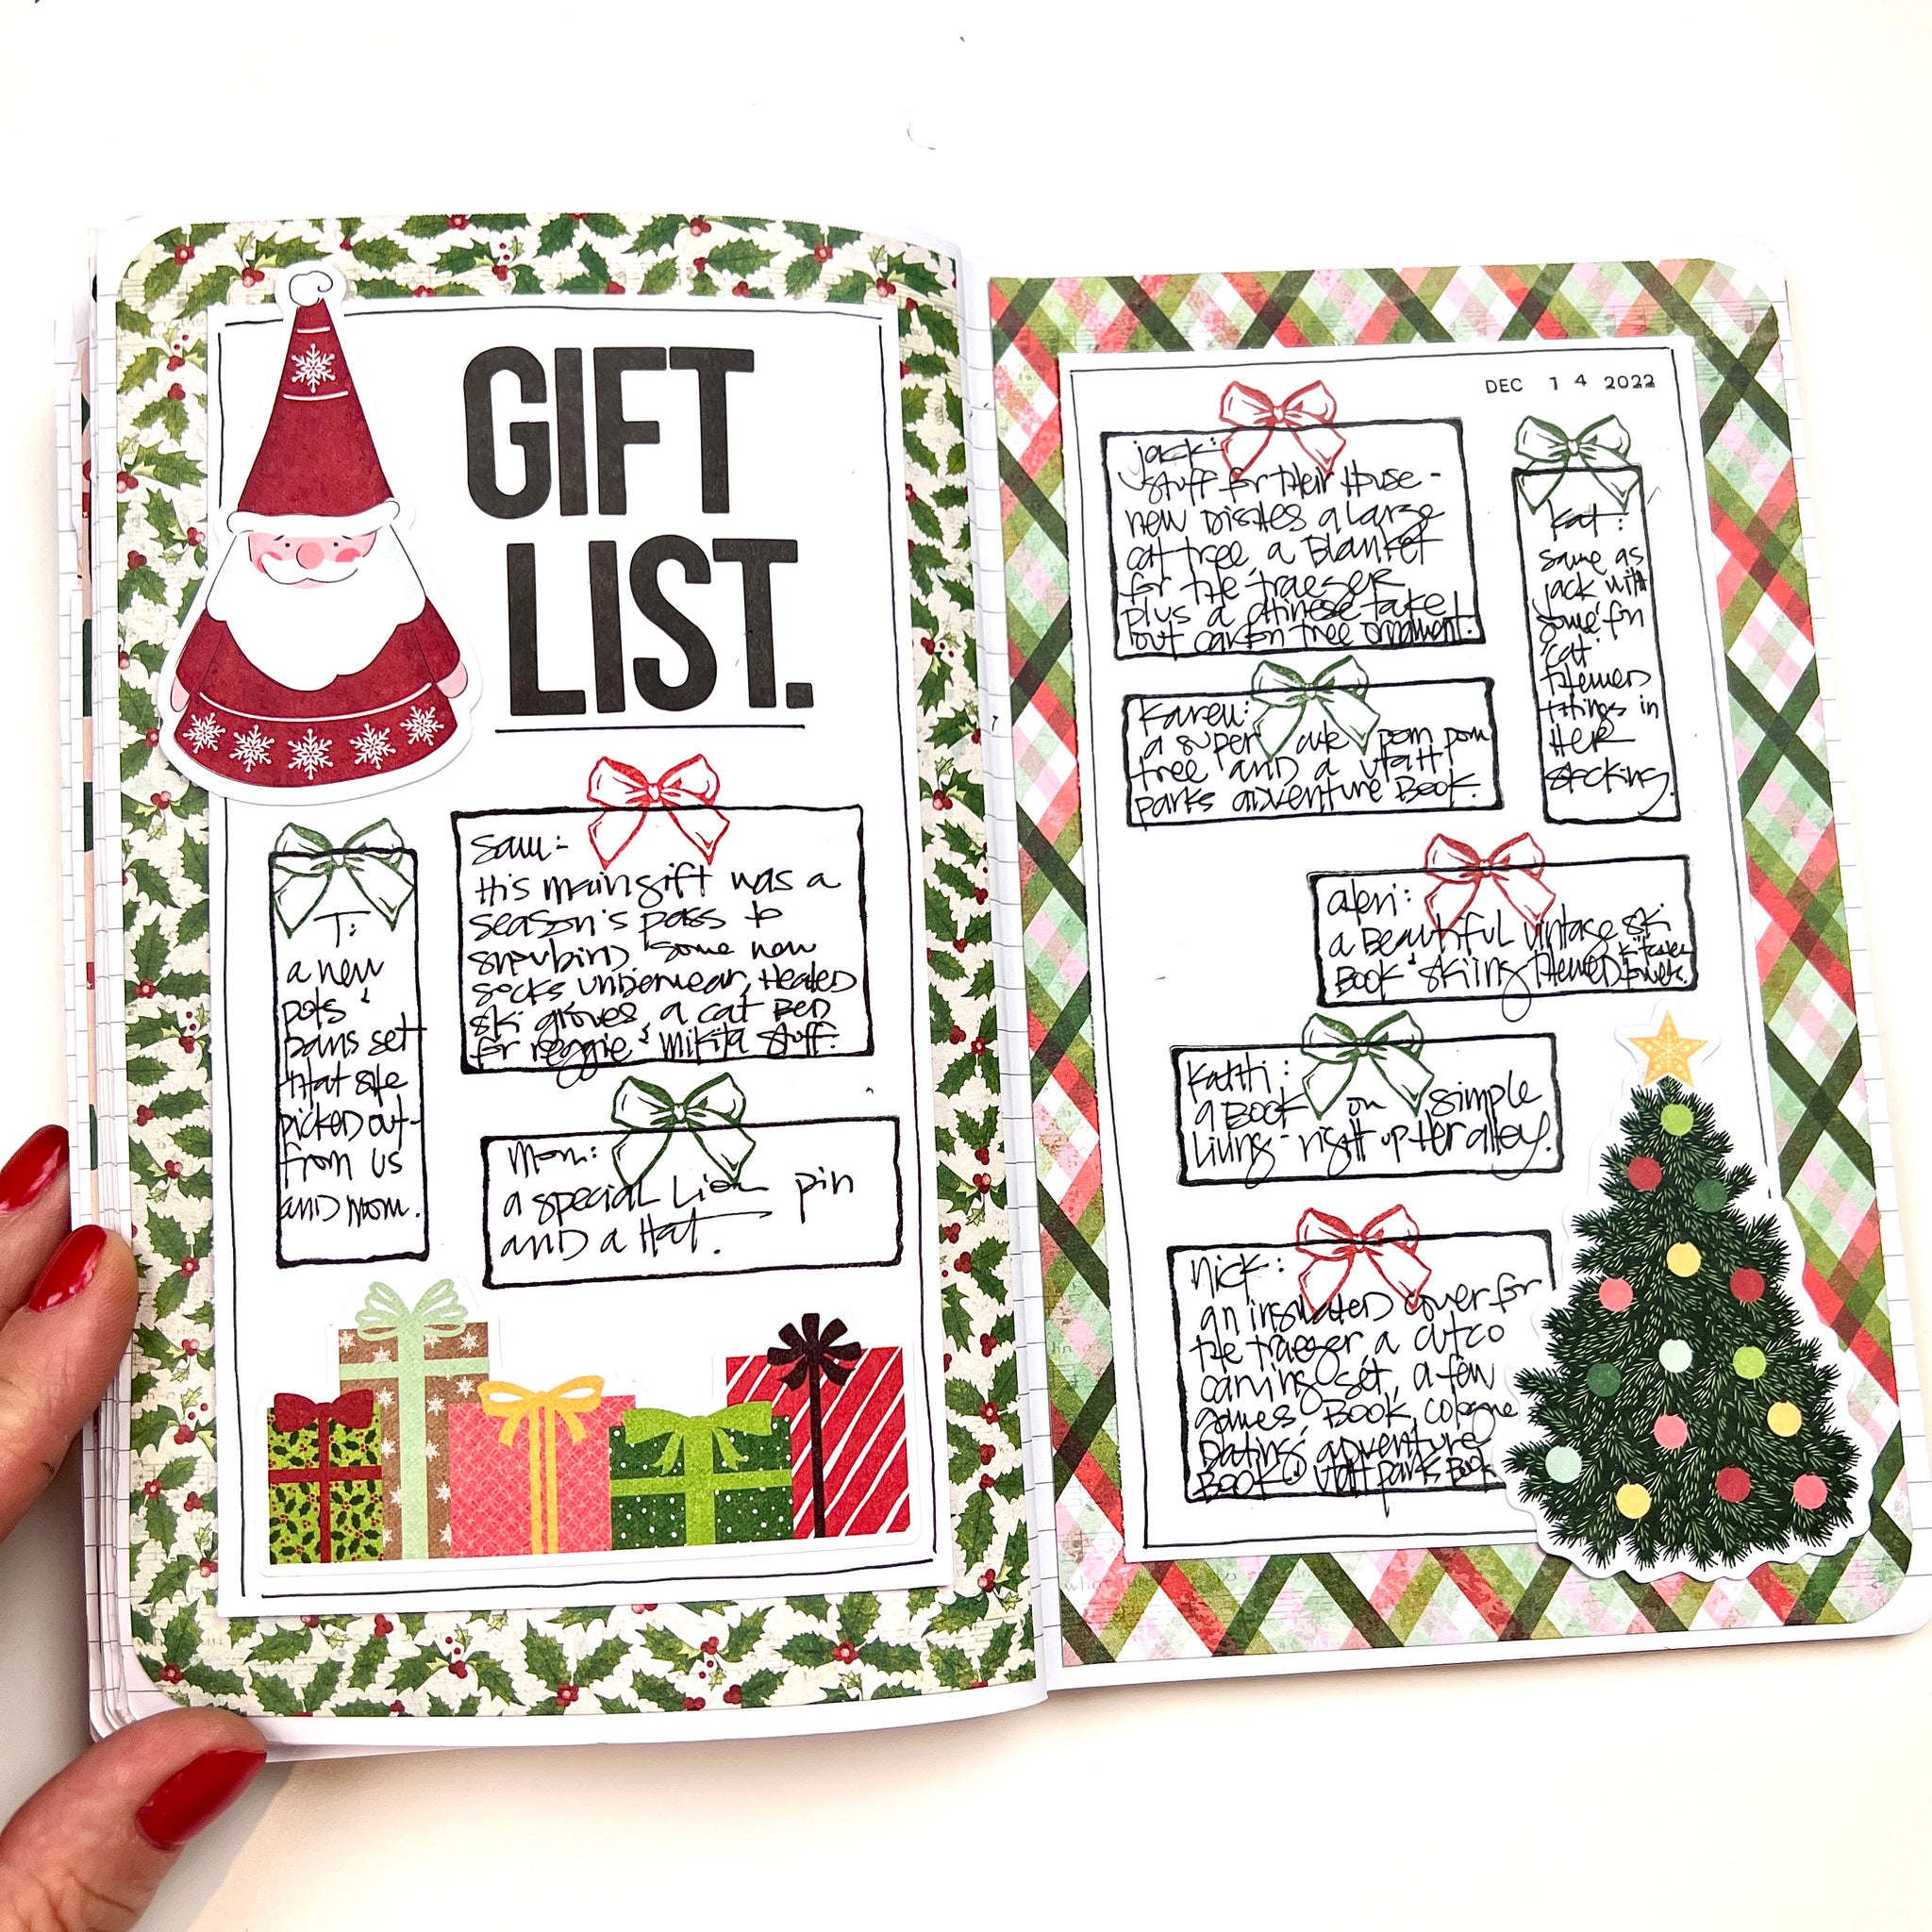 GIFT
LIST.
T:
a new
pots &
pans set
that she
picked out-
from us
and mom.
Sam:-
His main gift was a
season's pass to
snowbird some new
socks underwear, Heated
ski gloves a cat Bed
for reggie & mikita stuff.
Mom:
a special Lion pin
and a Hat.
DEC 14 2022
jack:
stuff for their House -
new Dishes a large
cat tree, a Blanket
for the traeger
plus a chinese take
out carton tree ornament.
Kat:
same as
jack with
some fun
cat
themed
things in
Her
stocking.
Karen:
a super cute pom pom
tree and a Utah
parks adventure Book.
a Beautiful vintage ski
Book & skiing themed kitchen towels.
Kathi:
a Book on simple
Living - right up Her alley.
Nick:
an insulated cover for
the traeger, a cutco
carving set, a few
games, Book, cologne
Dating adventure
Book & Utah parks Book